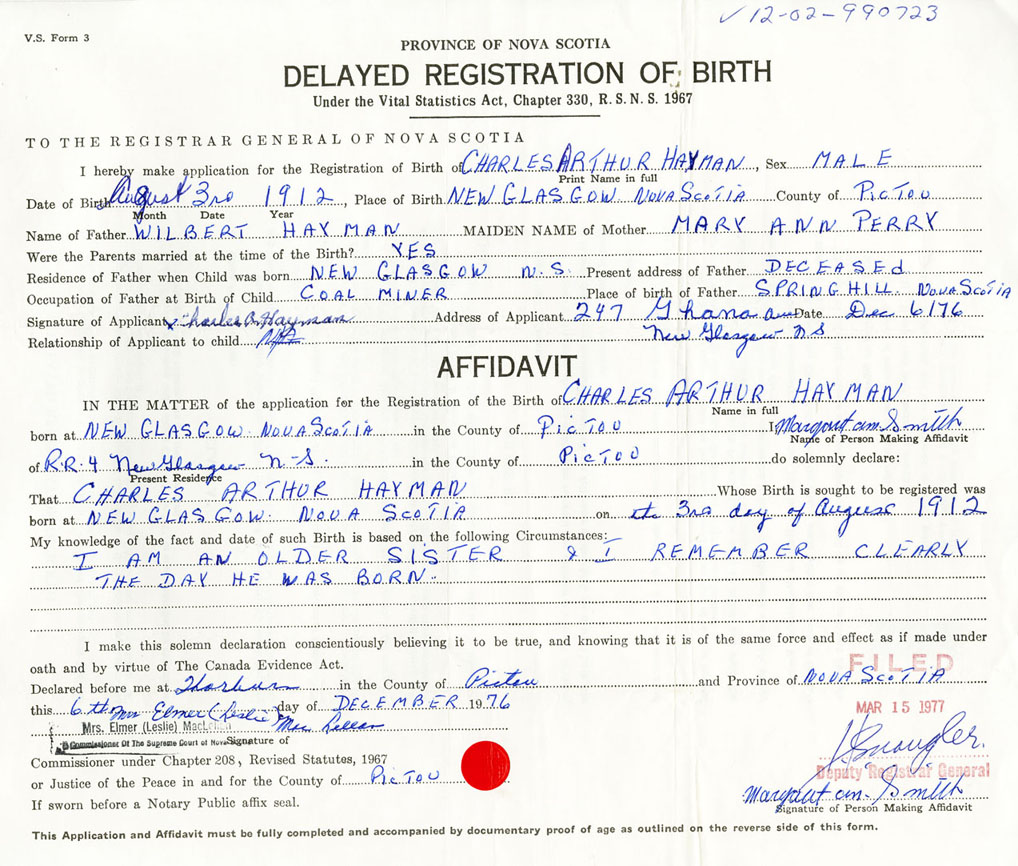 ✓ 12-02-990723
V.S. Form 3
PROVINCE OF NOVA SCOTIA
DELAYED REGISTRATION OF BIRTH
Under the Vital Statistics Act, Chapter 330, R. S. N. S. 1967
TO THE REGISTRAR GENERAL OF NOVA SCOTIA
I hereby make application for the Registration of Birth of CHARLES ARTHUR HAYMAN, Sex MALE
Print Name in full
Date of Birth August 3rd 1912, Place of Birth NEW GLASGOW NOVA SCOTIA County of PICTOU
Month Date Year
Name of Father WILBERT HAYMAN MAIDEN NAME of Mother MARY ANN PERRY
Were the Parents married at the time of the Birth? YES
Residence of Father when Child was born NEW GLASGOW N.S. Present address of Father DECEASEd
Occupation of Father at Birth of Child COAL MINER Place of birth of Father SPRINGHILL NOVA SCOTIA
Signature of Applicant x Charles A. Hayman Address of Applicant 247 Ghana Date Dec 6/76
Relationship of Applicant to child New Glasgow NS
AFFIDAVIT
IN THE MATTER of the application for the Registration of the Birth of CHARLES ARTHUR HAYMAN
Name in full
born at NEW GLASGOW NOVA SCOTIA in the County of PICTOU I Margaret Ann Smith
Name of Person Making Affidavit
of R.R.4 New Glasgow N-S. in the County of PICTOU do solemnly declare:
Present Residence
That CHARLES ARTHUR HAYMAN Whose Birth is sought to be registered was
born at NEW GLASGOW NOVA SCOTIA on the 3rd day of August 1912
My knowledge of the fact and date of such Birth is based on the following Circumstances:
I AM AN OLDER SISTER & I REMEMBER CLEARLY
THE DAY HE WAS BORN.
I make this solemn declaration conscientiously believing it to be true, and knowing that it is of the same force and effect as if made under
oath and by virtue of The Canada Evidence Act.
FILED
Declared before me at Thorburn in the County of Pictou and Province of NOVA SCOTIA
this 6th day of DECEMBER 1976
MAR 15 1977
Mrs Elmer (Leslie) MacLellan
Mrs. Elmer (Leslie) MacLellan
A Commissioner Of The Supreme Court of Nova
Signature of
Commissioner under Chapter 208, Revised Statutes, 1967
Deputy Registrar General
or Justice of the Peace in and for the County of PICTOU
Margaret Ann Smith
Signature of Person Making Affidavit
If sworn before a Notary Public affix seal.
This Application and Affidavit must be fully completed and accompanied by documentary proof of age as outlined on the reverse side of this form.